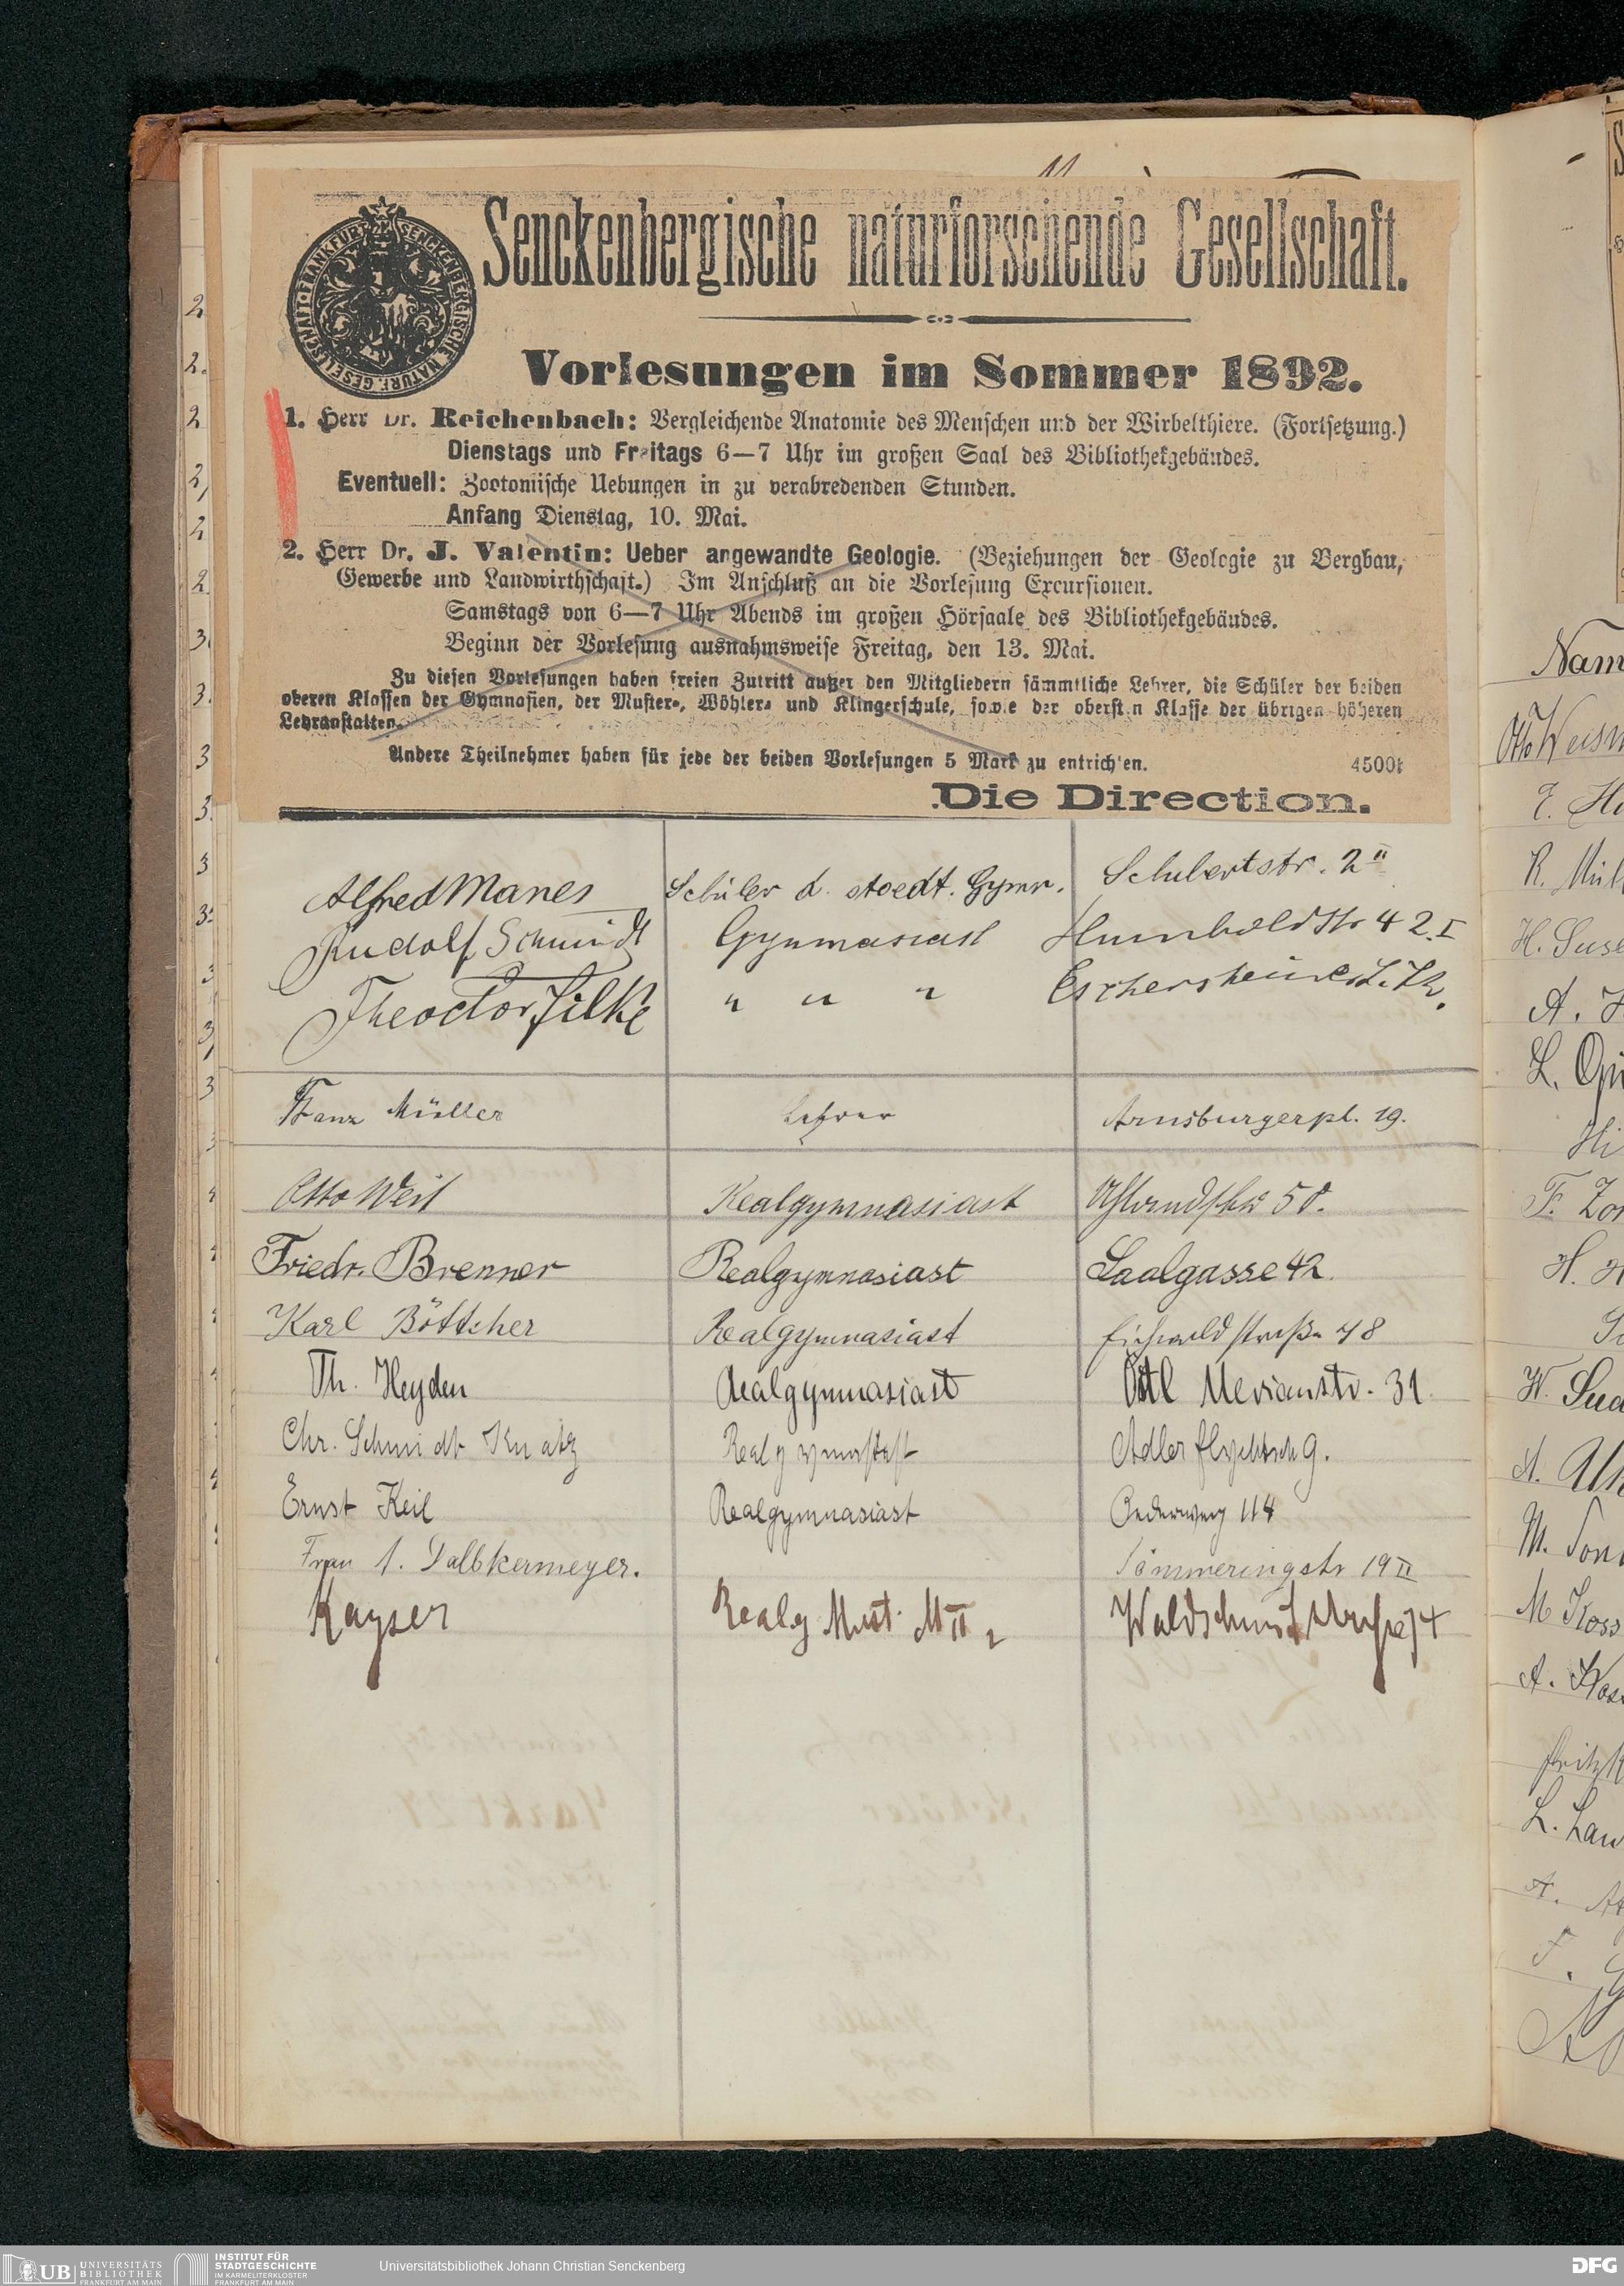 SENCKENBERGISCHE NATURF. GESELLSCHAFT · FRANKFURT A/M
Senckenbergische naturforschende Gesellschaft.
Vorlesungen im Sommer 1892.
1. Herr Dr. Reichenbach: Vergleichende Anatomie des Menschen und der Wirbelthiere. (Fortsetzung.)
Dienstags und Freitags 6—7 Uhr im großen Saal des Bibliothekgebäudes.
Eventuell: Zootomische Uebungen in zu verabredenden Stunden.
Anfang Dienstag, 10. Mai.
2. Herr Dr. J. Valentin: Ueber angewandte Geologie. (Beziehungen der Geologie zu Bergbau,
Gewerbe und Landwirthschaft.) Im Anschluß an die Vorlesung Excursionen.
Samstags von 6—7 Uhr Abends im großen Hörsaale des Bibliothekgebäudes.
Beginn der Vorlesung ausnahmsweise Freitag, den 13. Mai.
Zu diesen Vorlesungen haben freien Zutritt außer den Mitgliedern sämmtliche Lehrer, die Schüler der beiden
oberen Klassen der Gymnasien, der Muster-, Wöhler- und Klingerschule, sowie der obersten Klasse der übrigen höheren
Lehranstalten.
Andere Theilnehmer haben für jede der beiden Vorlesungen 5 Mark zu entrichten. 4500
Die Direction.
Alfred Manes Schüler d. staedt. Gymn. Schubertstr. 2 II
Rudolf Schmidt Gymnasiast Humboldtstr 42. I
Theodor Jilke " " " Eschersheimer
Franz Müller Lehrer Arnsburgerpl. 19.
Otto Weil Realgymnasiast Uhlandstr 50.
Friedr. Brenner Realgymnasiast Saalgasse 42.
Karl Böttcher Realgymnasiast Eichwaldstraße 48
Th. Heyden Realgymnasiast Östl Merianstr. 31.
Chr. Schmidt Knatz Realgymnasiast Adlerflychtstr 9.
Ernst Keil Realgymnasiast Oederweg 114
Frau A. Dalbkermeyer. Sömmeringstr 19 II
Kayser Realg. Must. M II 2 Waldschmidtstraße 74
Nam
Otto Weism
R. Mül
H. Suse
A. H
L. Op
Hi
F. Zon
H. H
W. Sua
M. Son
M Koss
A. Koss
Fritz K
L. Lau
UB UNIVERSITÄTS
BIBLIOTHEK
FRANKFURT AM MAIN
INSTITUT FÜR
STADTGESCHICHTE
IM KARMELITERKLOSTER
FRANKFURT AM MAIN
Universitätsbibliothek Johann Christian Senckenberg
DFG